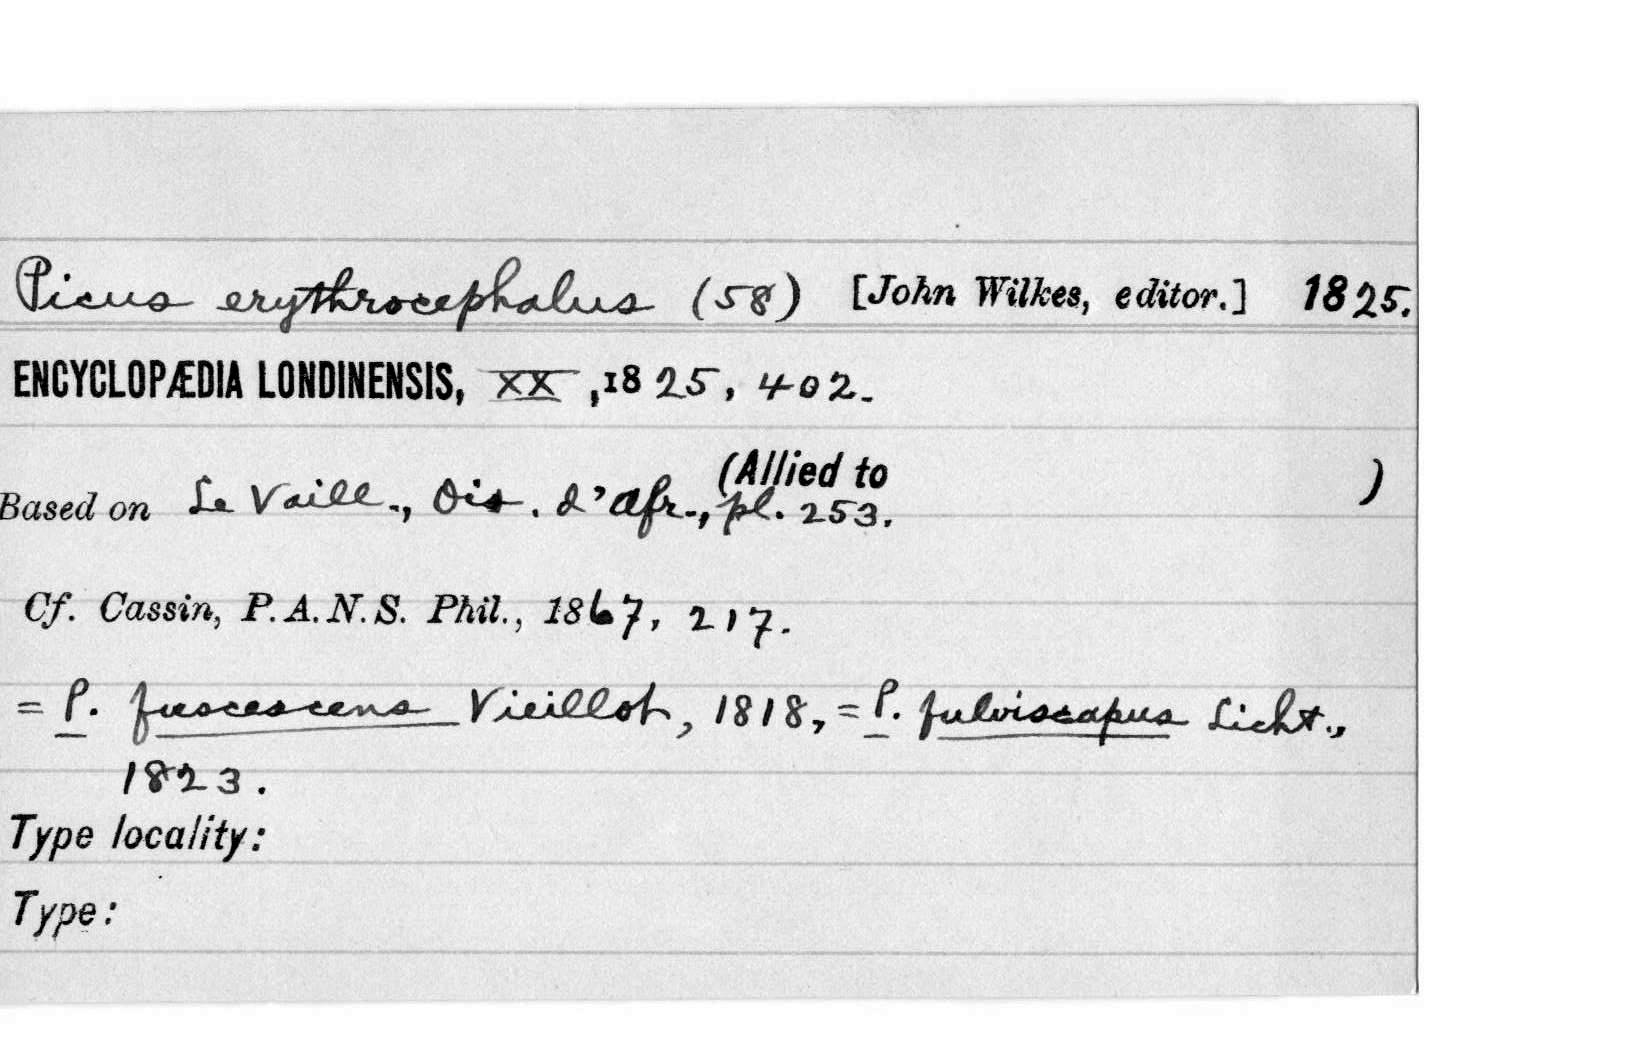 Picus erythrocephalus (58) [John Wilkes, editor.] 1825.
ENCYCLOPÆDIA LONDINENSIS, XX, 1825, 402.
(Allied to )
Based on Le Vaill., Ois. d'Afr., pl. 253.
Cf. Cassin, P.A.N.S. Phil., 1867, 217.
= P. fuscescens Vieillot, 1818, = P. fulviscapus Licht.,
1823.
Type locality:
Type: